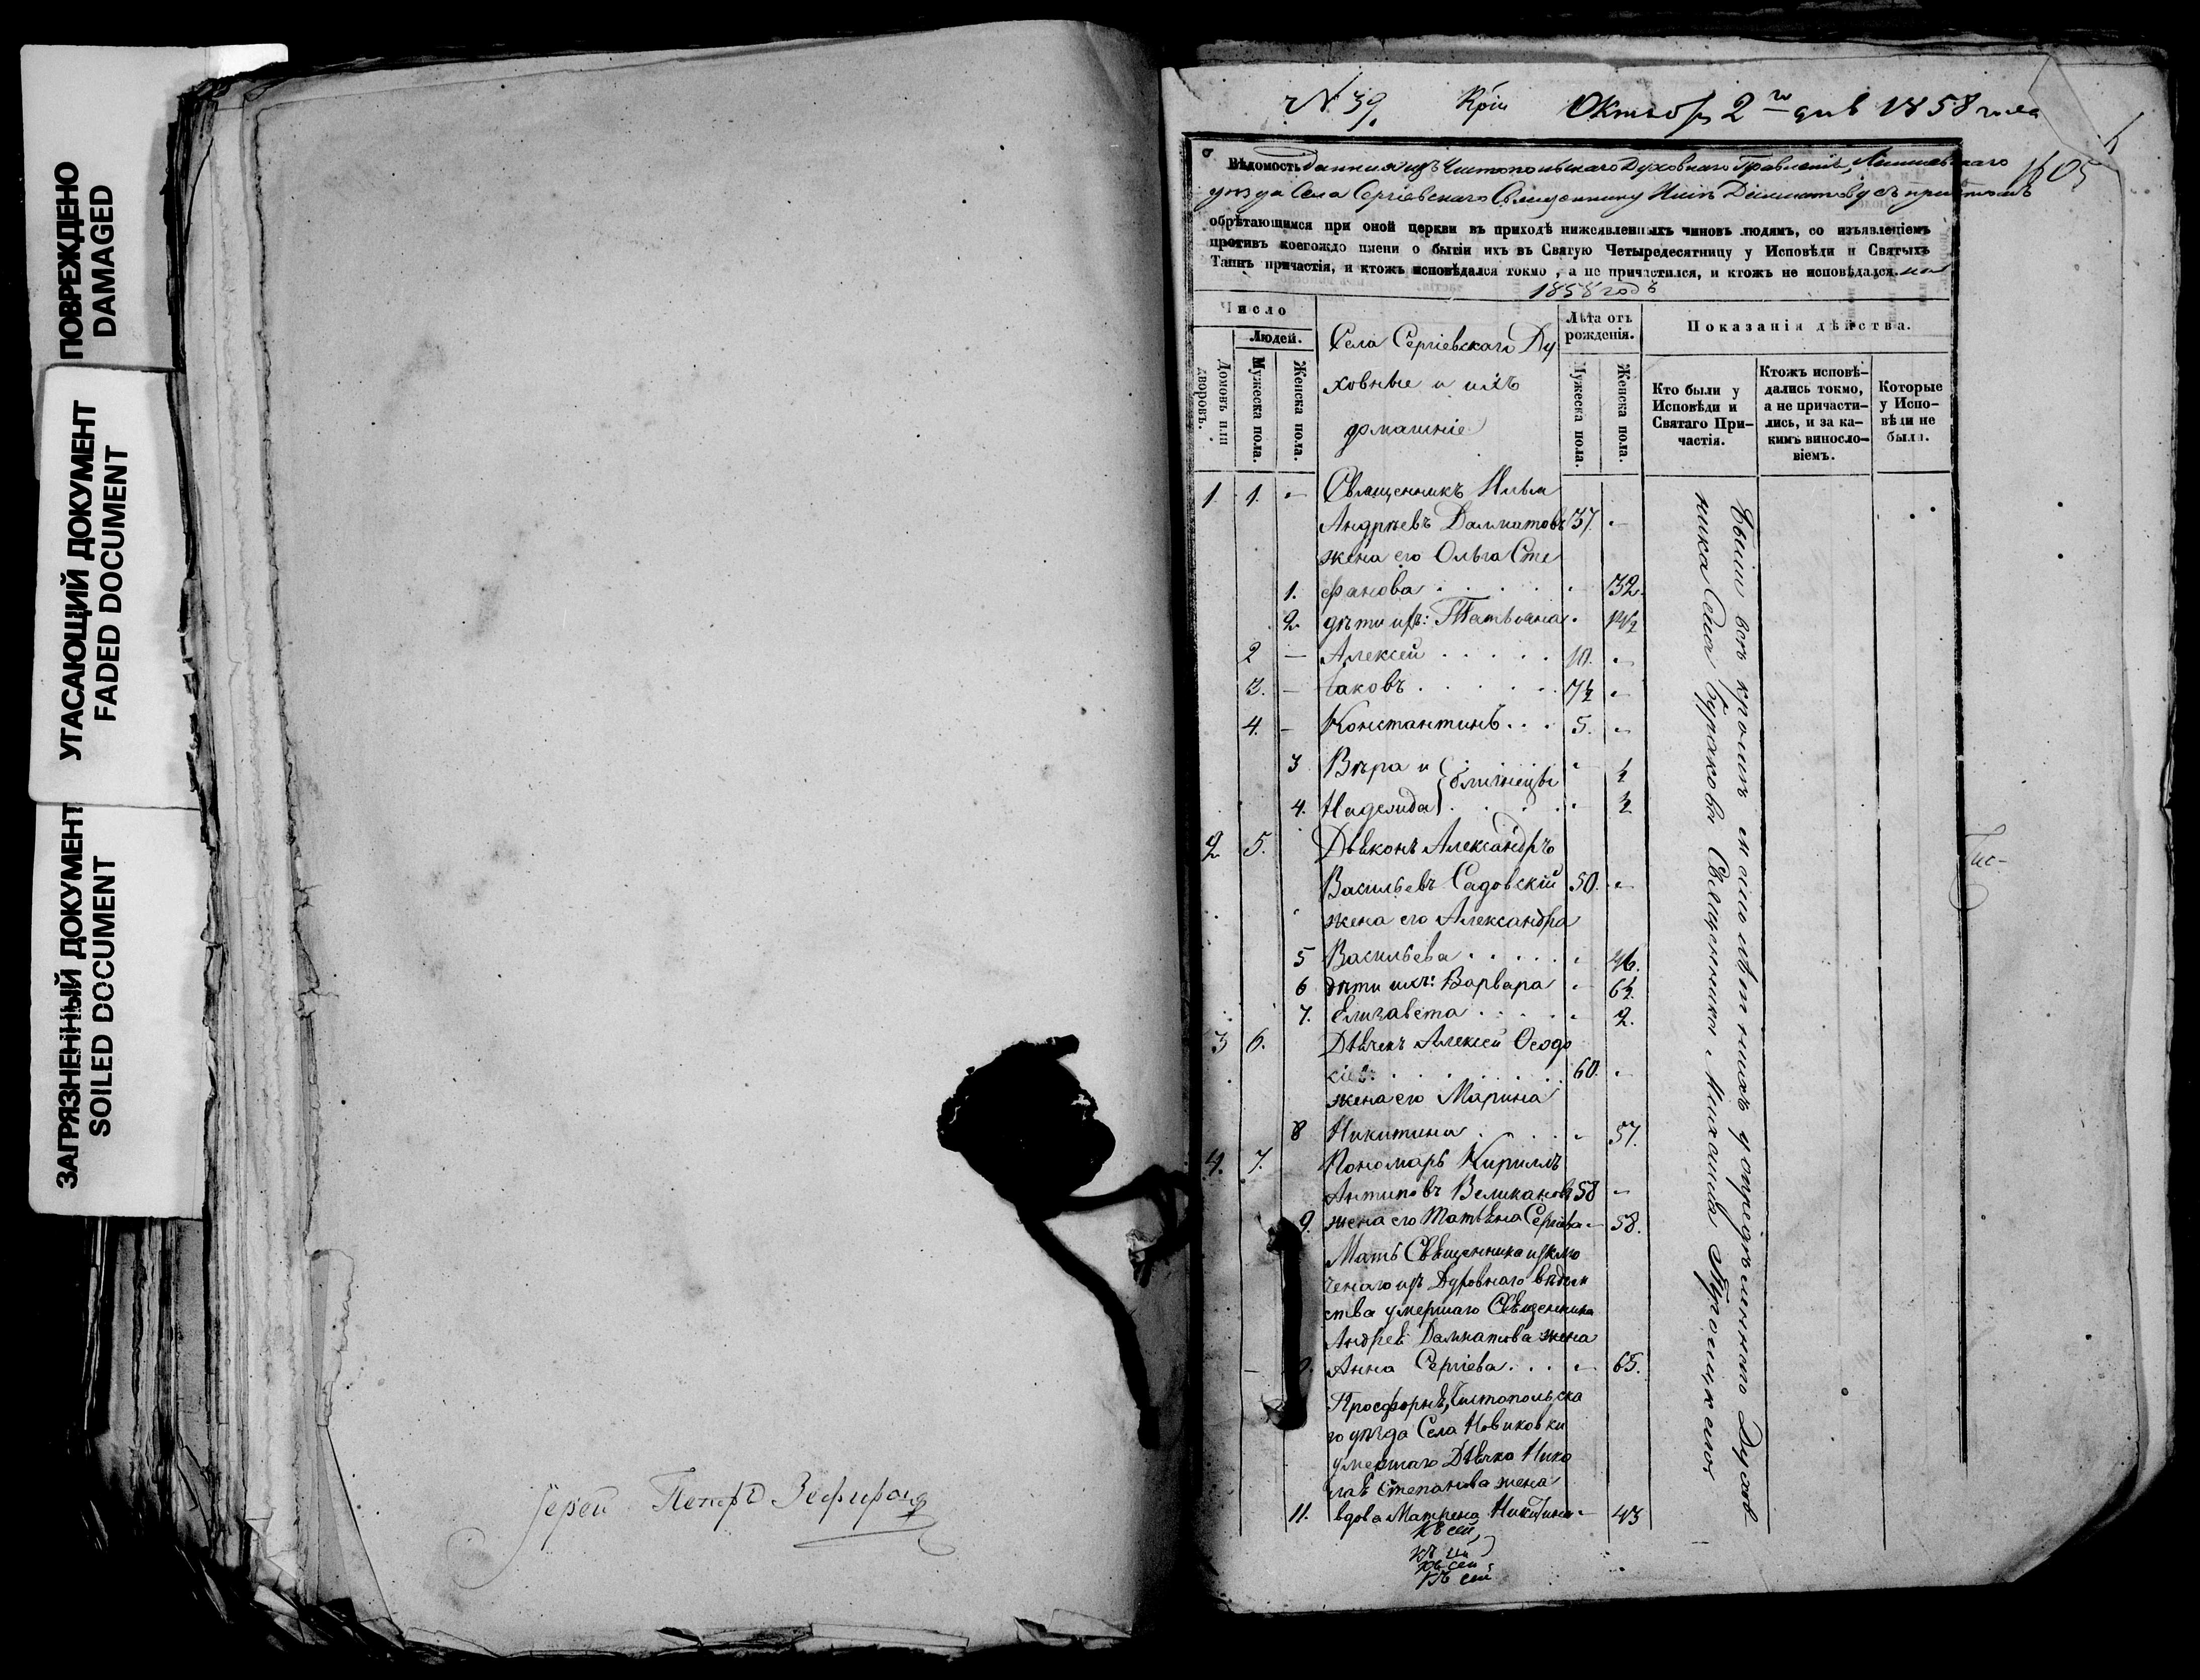 ПОВРЕЖДЕНО
DAMAGED
УГАСАЮЩИЙ ДОКУМЕНТ
FADED DOCUMENT
ЗАГРЯЗНЕННЫЙ ДОКУМЕНТ
SOILED DOCUMENT
Іерей Петръ Зефировъ
№ 39. Октября 2го дня 1858 года
Вѣдомость данная изъ Чистопольскаго Духовнаго Правленія,
уѣзда Села Сергіевскаго Священнику Иліи Далматову съ причтомъ
обрѣтающимся при оной церкви въ приходѣ нижеявленныхъ чиновъ людямъ, со изъявленіемъ
противъ коегождо имени о бытіи ихъ въ Святую Четыредесятницу у Исповѣди и Святыхъ
Таинъ причастія, и ктожъ исповѣдался токмо, а не причастился, и ктожъ не исповѣдался. на
1858 годъ
Число
Людей.
Домовъ или дворовъ.
Мужеска пола.
Женска пола.
Села Сергіевскаго Ду
ховные и ихъ
домашніе
Лѣта отъ рожденія.
Мужеска пола.
Женска пола.
Показанія дѣйства.
Кто были у Исповѣди и Святаго Причастія.
Ктожъ исповѣдались токмо, а не причастились, и за какимъ винословіемъ.
Которые у Исповѣди не были.
1. 1. — Священникъ Илья
Андреевъ Далматовъ 37. —
жена его Ольга Сте
1. фанова 32.
2. дѣти ихъ: Татьяна
2 — Алексей 10. —
3. — Іаковъ 7½ —
4. — Константинъ 5. —
3 Вѣра и близнецы ½
4. Надежда ½
2. 5. Діаконъ Александръ
Васильевъ Садовскій 50. —
жена его Александра
5 Васильева 46.
6 дѣти ихъ: Варвара 6½
7. Елизавета 2.
3 6. Дьячекъ Алексей
60. —
жена его Марина
8 Никитина 57.
4. 7. Пономарь Кириллъ
Антиповъ Великановъ 58 —
9. жена его Татьяна Сергіева 58.
Мать Священника исклю
ченаго изъ Духовнаго вѣдом
ства умершаго Священника
Андрея Далматова жена
Анна Сергіева 65.
Просфорня, Чистопольска
го уѣзда Села Новиковки
умершаго Дьячка Нико
лая Степанова жена
11. вдова Матрена Никитина 43
къ сей
къ сей
къ сей
Были всѣ кромѣ семилѣтнихъ у опредѣленнаго Духов
ника Села Бураковъ Священника Михаила